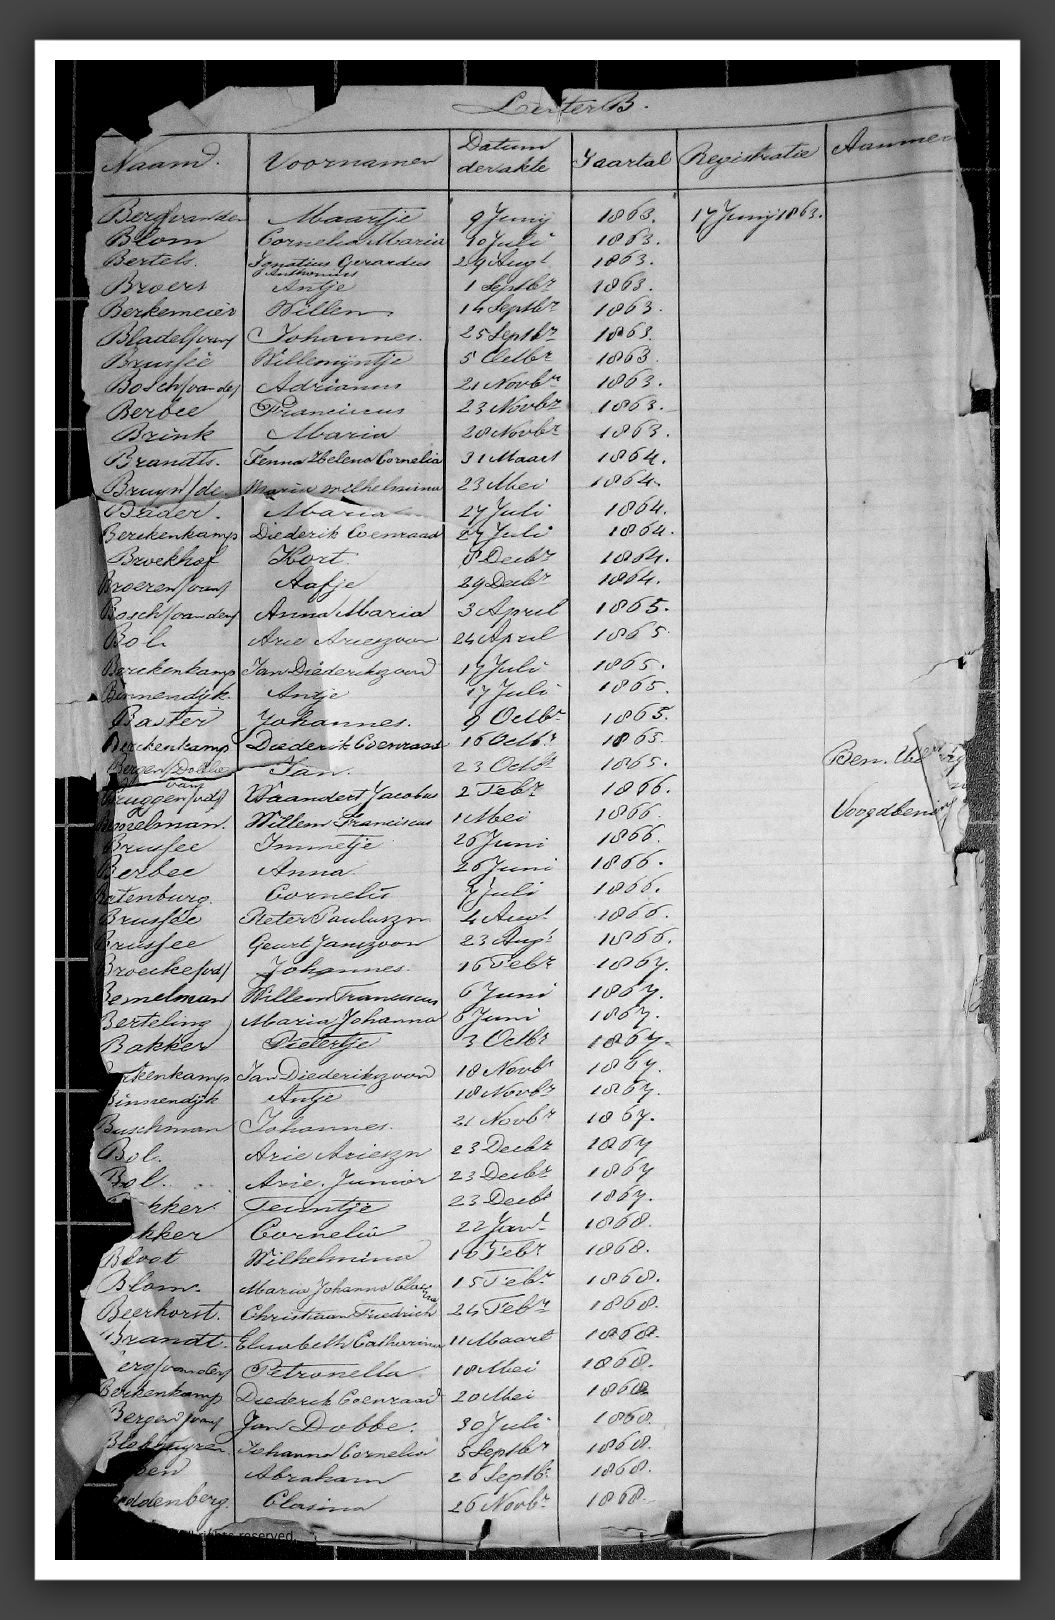 Letter B.
Naam. Voornamen Datum der akte Jaartal Registratie Aanmer
Berg/van den Maartje 9 Juny 1863. 17 Juny 1863.
Blom Cornelia Maria 10 Juli 1863.
Bertels. Ignatius Gerardus 29 Augt 1863.
Anthonius
Broers Antje 1 Septbr 1863.
Berkemeier Willem 14 Septbr 1863.
Bladel/van/ Johannes. 25 Septbr 1863.
Brussee Willemijntje 5 Octbr 1863.
Bosch/van de/ Adrianus 21 Novbr 1863.
Berbee Franciscus 23 Novbr 1863.
Brink Maria 28 Novbr 1863.
Brandts. Fenna Helena Cornelia 31 Maart 1864.
Bruyn/de Maria Wilhelmina 23 Mei 1864.
Bader. Maria 27 Juli 1864.
Berckenkamp Diederik Coenraad 27 Juli 1864.
Broekhof Kort. 8 Decbr 1864.
Broeren/van/ Aafje 29 Decbr 1864.
Bosch/van den/ Anna Maria 3 April 1865.
Bol. Arie Arieszoon 24 April 1865.
Berckenkamp Jan Diederikzoon 17 Juli 1865.
Binnendijk. Antje 17 Juli 1865.
Baster Johannes. 9 Octbr 1865.
Berckenkamp Diederik Coenraad 16 Octbr 1865.
Bergen/Dobbe Jan. 23 Octbr 1865. Ben.
van
Bruggen/vd/ Waandert Jacobus 2 Febr 1866. Voogdbenoem
melman. Willem Franciscus 1 Mei 1866.
Brussee Immetje 26 Juni 1866.
Berbee Anna 26 Juni 1866.
rtenburg. Cornelis 7 Juli 1866.
Brussee Pieter Pauluszn 4 Augt 1866.
Brussee Geurt Janszoon 23 Augt 1866.
Broecke/vd/ Johannes. 16 Febr 1867.
Bemelman Willem Franciscus 6 Juni 1867.
Berteling Maria Johanna 8 Juni 1867.
Bakker Pietertje 3 Octbr 1867.
rkenkamp Jan Diederikszoon 18 Novbr 1867.
Binnendijk Antje 18 Novbr 1867.
Buschman Johannes. 21 Novbr 1867.
Bol. Arie Arieszn 23 Decbr 1867
Bol. Arie. Junior 23 Decbr 1867
kker. Teuntje 23 Decbr 1867.
kker Cornelis 22 Jan. 1868.
Bloot Wilhelmina 10 Febr 1868.
Blom. Maria Johanna 15 Febr 1868.
Beerhorst. Christiaan Friedrich 24 Febr 1868.
Brandt. Elisabeth Catharina 11 Maart 1868.
erg/van der/ Petronella 18 Mei 1868.
Berkenkamp Diederik Coenraad 20 Mei 1868
Bergen/van/ Jan Dobbe. 30 Juli 1868.
Blokhuyzen. Johanna Cornelia 5 Septbr 1868.
en Abraham 26 Septbr 1868.
ddenberg. Clasina 26 Novbr 1868.
rights reserved.